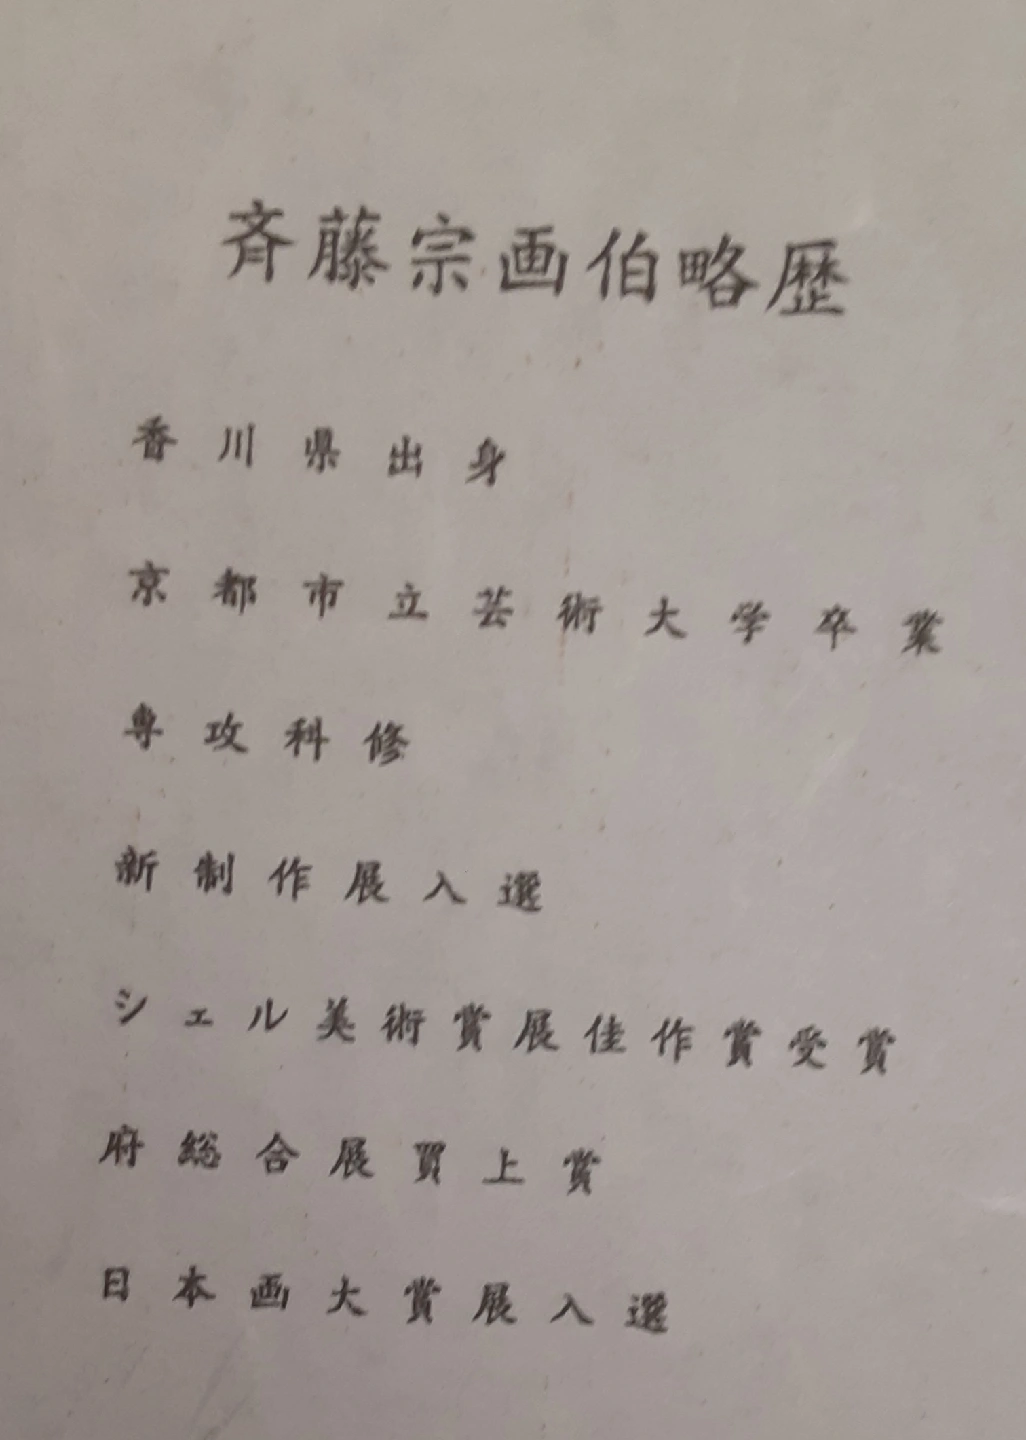 斉藤宗画伯略歴
香川県出身
京都市立芸術大学卒業
専攻科修
新制作展入選
シェル美術賞展佳作賞受賞
府総合展買上賞
日本画大賞展入選